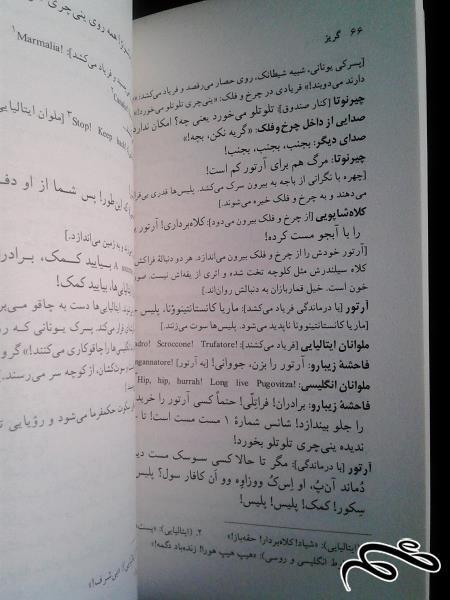 ۶۶ گریز
[پسرکی یونانی، شبیه شیطانک، روی حصار می‌رقصد و فریاد می‌کشد: «
دارند می‌دوبند!» فریادی در چرخ و فلک: «ینی‌چری تلوتلو می‌خورد!»
چیرنوتا [کنار صندوق]: تلوتلو می‌خورد یعنی چه؟ امکان ندارد
صدایی از داخل چرخ‌وفلک: «گریه نکن، بچه!»
صدای دیگر: بجنب، بجنب، بجنب!
چیرنوتا: مرگ هم برای آرتور کم است!
[چهره با نگرانی از باجه به بیرون سرک می‌کشد. پلیس‌ها قدری بی‌قرا
می‌دهند و به چرخ و فلک خیره می‌شوند.]
کلاه‌شاپویی [از چرخ و فلک بیرون می‌دود]: کلاه‌برداری! آرتور
را با آبجو مست کرده!
[آرتور خودش را از چرخ و فلک بیرون می‌اندازد. هر دو دنبالهٔ فراکش
کلاه سیلندرش مثل کلوچه تخت شده و اثری از یقه‌اش نیست. صور
خون است. خیل قماربازان به دنبالش روان‌اند.]
آرتور [با درماندگی فریاد می‌کشد]: ماریا کانستانتینوونا، پلیس
[ماریا کانستانتینوونا ناپدید می‌شود. پلیس‌ها سوت می‌زنند.]
ملوانان ایتالیایی [فریاد می‌کشند]: adro! Scroccone! Trufatore!
فاحشهٔ زیبارو: آرتور را بزن، جووانی! [به آرتور] !gannatore
ملوانان انگلیسی: Hip, hip, hurrah! Long live Pugovitza!
فاحشهٔ زیبارو: برادران! فراتلّی! حتماً کسی آرتور را خرید
را جلو بیندازد! شانس شمارهٔ ۱ مست مست است! تا
ندیده ینی‌چری تلوتلو بخورد!
آرتور [با درماندگی]: مگر تا حالا کسی سوسک مست دید
دُماند آن‌پُ، او اِس‌کُ ووزاوِه وو اَن کافار سول؟ پلیس
سکور! کمک! پلیس! پلیس!
(ایتالیایی): «شیاد! کلاه‌بردار! حقه‌باز!» ۲. (ایتالیایی): «پست
ط انگلیسی و روسی): «هیپ هیپ هورا! زنده‌باد دگمه!»
همه روی ینی‌چری
فریاد می‌کشد]: Marmalia!
Stop! Keep [ملوان ایتالیایی
این‌طور! پس شما از او دف
و به زمین می‌اندازد.]
بیایید کمک، برادر
بیایید کمک!
ایتالیایی‌ها دست به چاقو می‌بر
قرار می‌کند. پسرک یونانی که رو
انگلیسی‌ها را چاقوکاری می‌کنند!» گر و
سوت‌کشان، از کوچه سر می‌رسند.
سکون حکمفرما می‌شود و رؤیایی